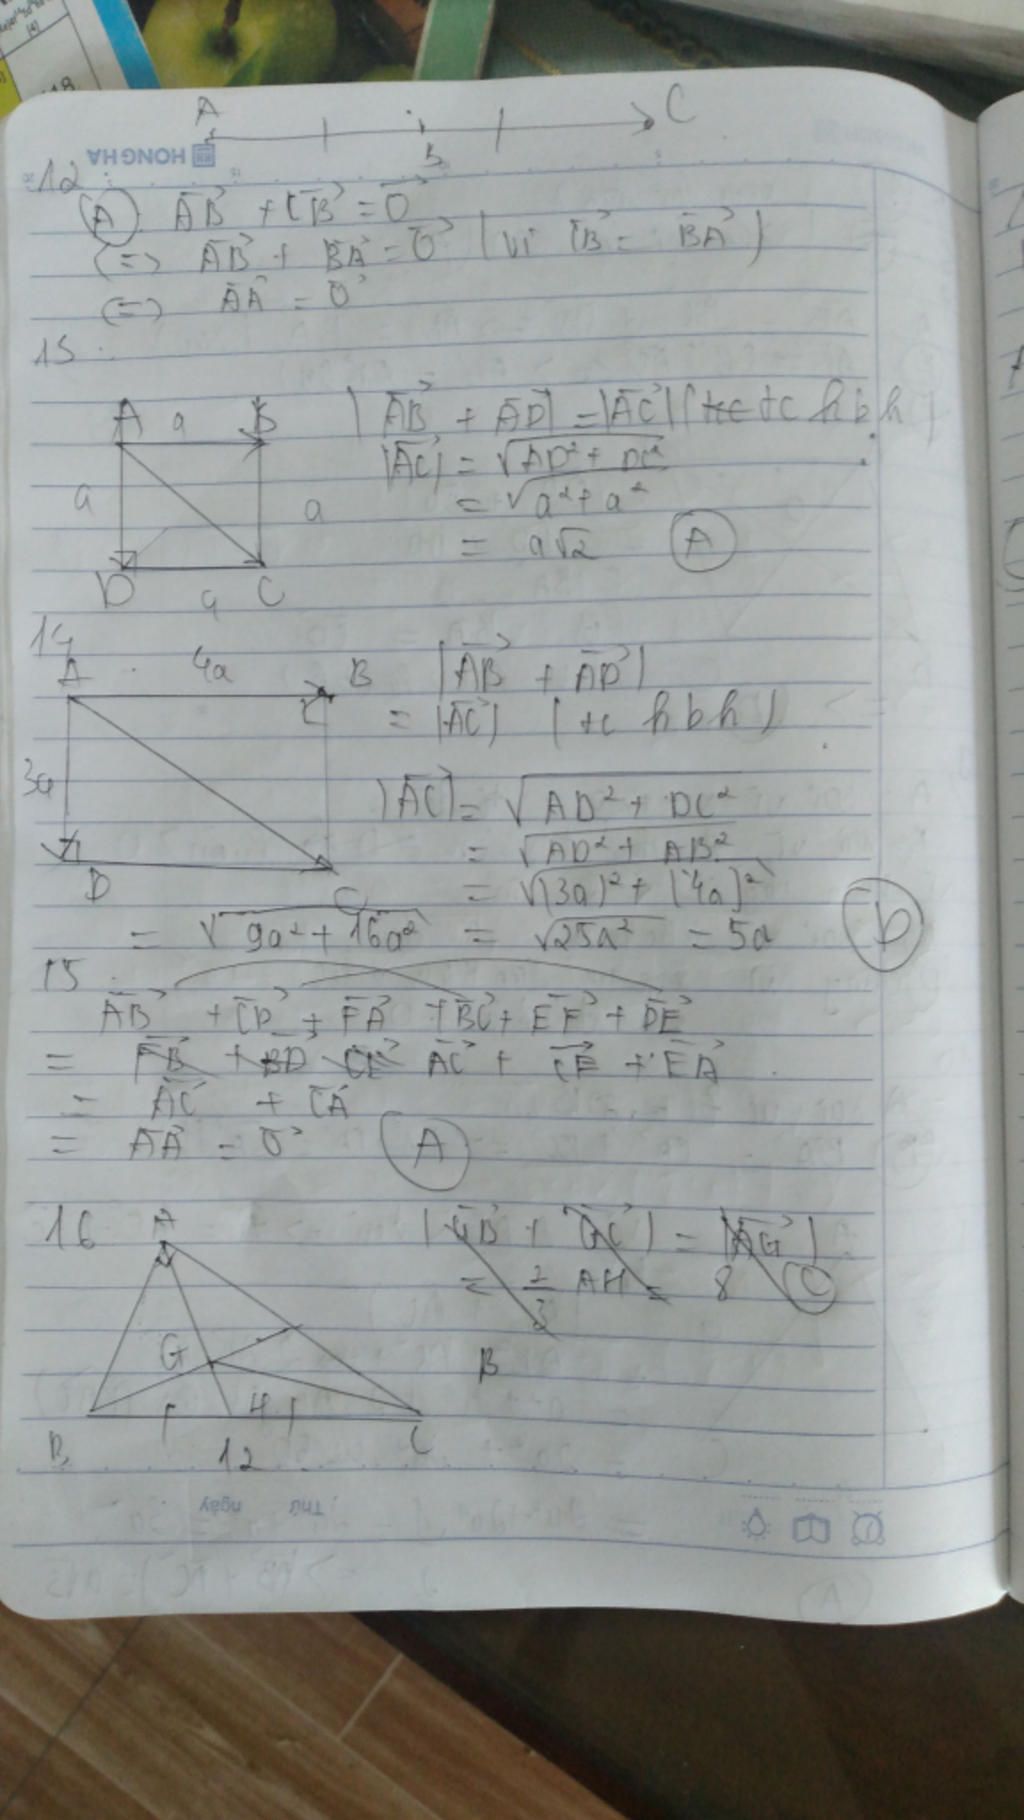 A C
B
HONG HA
12
(A). AB⃗ + CB⃗ = 0⃗
(=> AB⃗ + BA⃗ = 0⃗ (vì CB⃗ = BA⃗)
(=> AA⃗ = 0⃗
13.
A a B
a a
D a C
|AB⃗ + AD⃗| = |AC⃗| (tc hbh)
|AC⃗| = √AD² + DC²
= √a² + a²
= a√2 (A)
14
A 4a B
3a
D C
|AB⃗ + AD⃗|
= |AC⃗| (tc hbh)
|AC⃗| = √AD² + DC²
= √AD² + AB²
= √(3a)² + (4a)²
= √9a² + 16a² = √25a² = 5a (D)
15
AB⃗ + CD⃗ + FA⃗ + BC⃗ + EF⃗ + DE⃗
= FB⃗ + BD⃗ CE⃗ AC⃗ + CE⃗ + EA⃗
= AC⃗ + CA⃗
= AA⃗ = 0⃗ (A)
16
A
G
B 12 C
|GB⃗ + GC⃗| = |AG⃗|
= 2/3 AH = 8 (C)
B
Thứ ngày